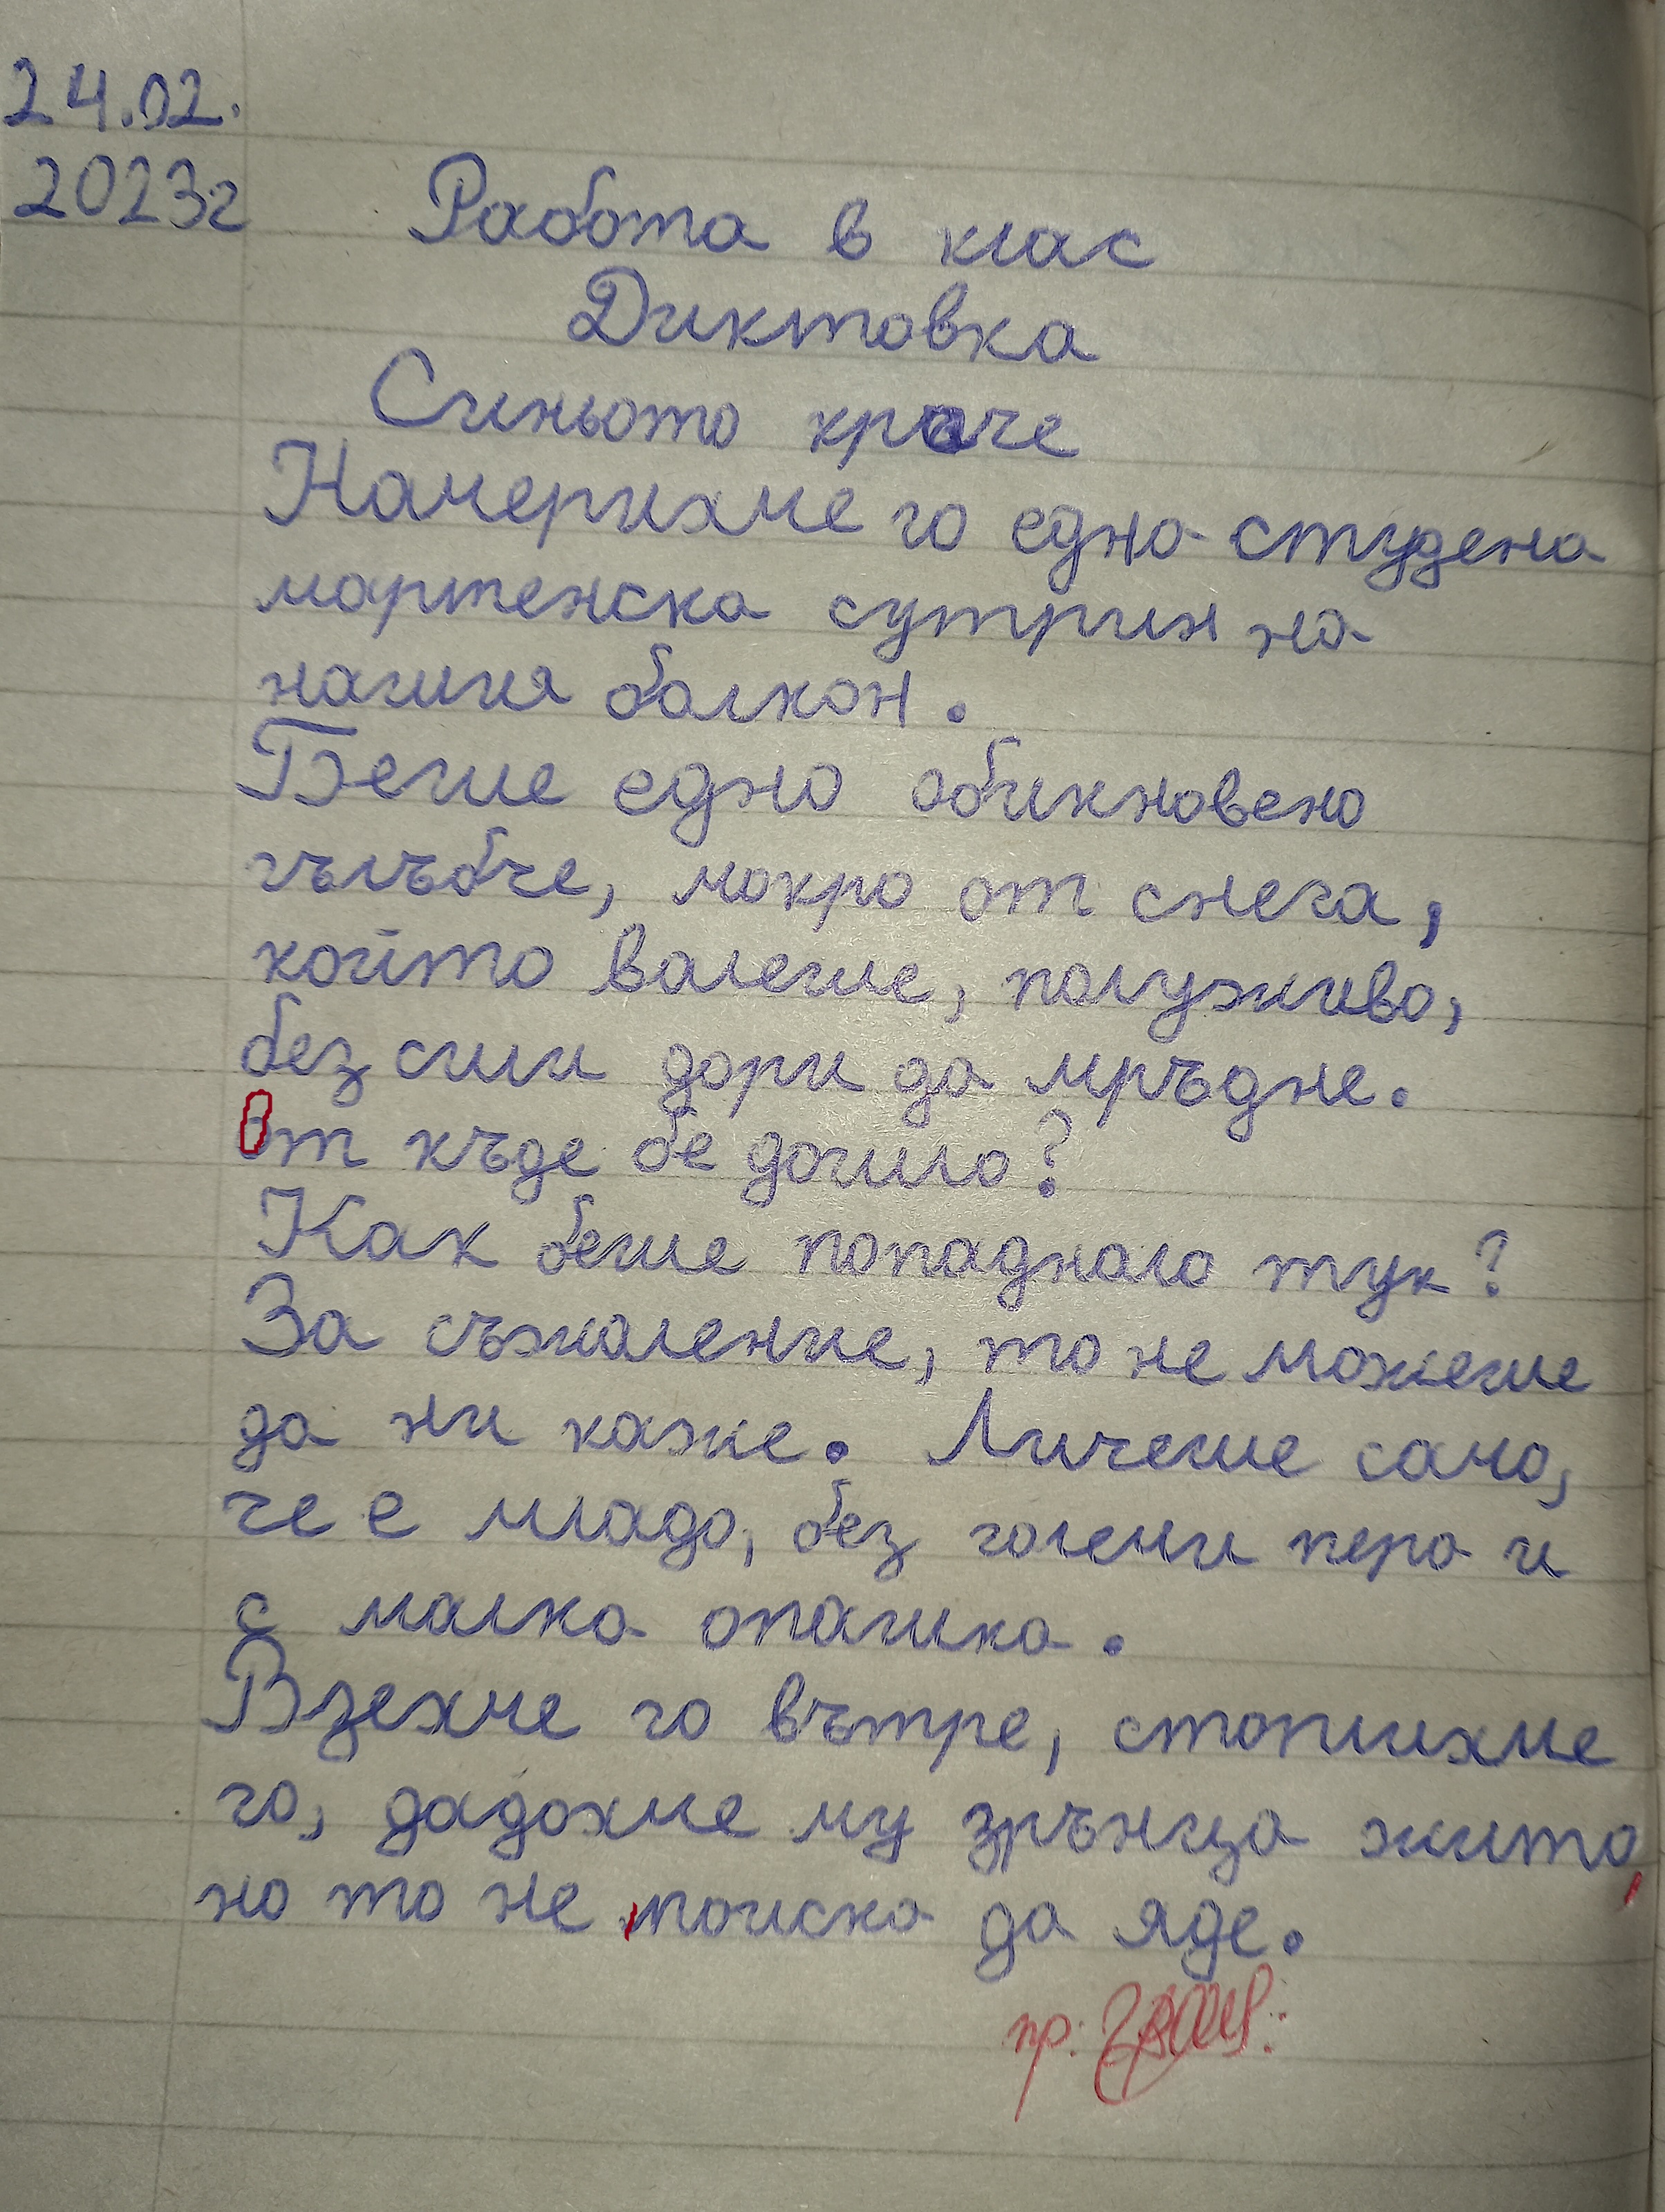 24.02.
2023г
Работа в клас
Диктовка
Синьото краче
Намерихме го една студена
мартенска сутрин на
нашия балкон.
Беше едно обикновено
гълъбче, мокро от снега,
който валеше, полуживо,
без сили дори да мръдне.
От къде бе дошло?
Как беше попаднало тук?
За съжаление, то не можеше
да ни каже. Личеше само,
че е младо, без големи пера и
с малка опашка.
Взехме го вътре, стоплихме
го, дадохме му зрънца жито,
но то не поиска да яде.
пр: